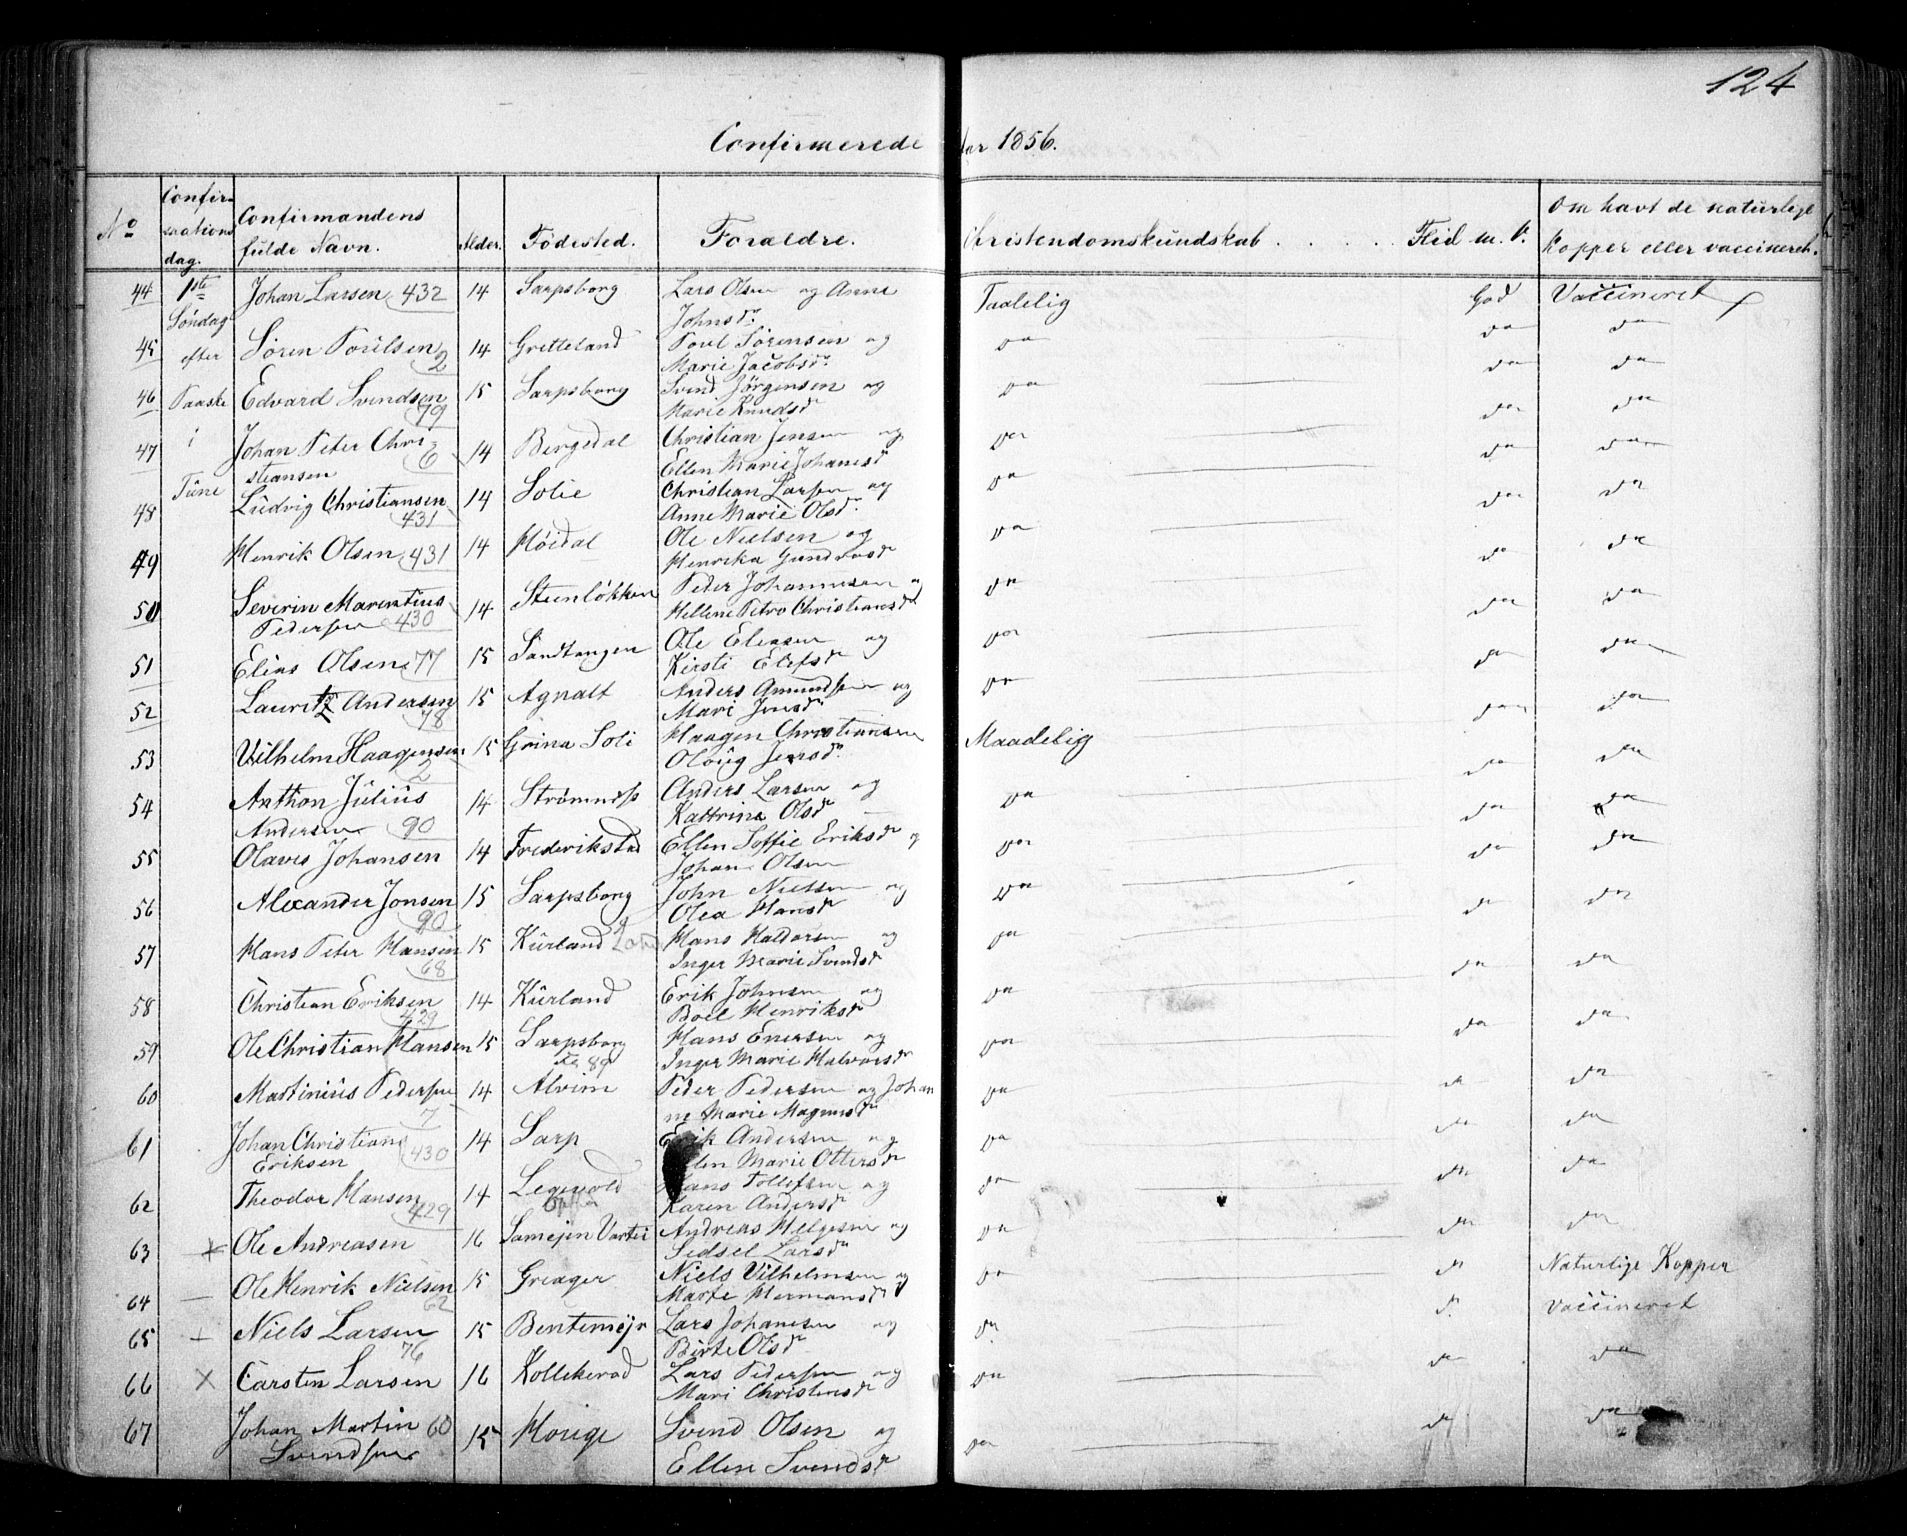 124
Confirmerede aar 1856.
No Confirmations dag. Confirmandens fulde Navn. Alder. Födested. Foraeldre. Christendomskundskab . . . . . Flid m. v. Om havt de naturlige Kopper eller vaccineret.
44 1ste Johan Larsen 432 14 Sarpsborg Lars Olsen og Anne Taalelig God Vaccineret
Söndag Johnsdr
45 efter Sören Poulsen 2 14 Gretteland Poul Sörensen og do do do
Marie Jacobsdr
46 Paaske Edvard Svendsen 79 15 Sarpsborg Svend Jörgensen og do do do
Marie Knudsdr
47 i Johan Peter Chri- 6 14 Bergedal Christian Jensen og do do do
stiansen Ellen Marie Johanesdr
48 Tune Ludvig Christiansen 431 14 Solie Christian Larsen og do do do
Anne Marie Olsdr
49 Henrik Olsen 431 14 Höidal Ole Nielsen og do do do
Henrika Gundersdr
50 Severin Marentius 14 Steenlökken Peder Johannesen og do do do
Pedersen 430 Hellene Petro Christiansdr
51 Elias Olsen 77 15 Sandtangen Ole Eliasen og do do do
Kirsti Elefsdr
52 Lauritz Andersen 78 15 Agnalt Anders Amundsen og do do do
Mari Jensdr
53 Vilhelm Haagensen 2 15 Grina Soli Haagen Christiansen Maadelig do do
Oloug Jensdr
54 Anthon Julius 14 Strömness Anders Larsen og do do do
Andersen 90 Kattrina Olsdr
55 Olaves Johansen 14 Frederikstad Ellen Soffie Eriksdr og do do do
Johan Olsen
56 Alexander Jonsen 90 15 Sarpsborg John Nielsen og do do do
Olea Hansdr
57 Hans Peter Hansen 68 15 Kurland Hans Haldorsen og do do do
Inger Marie Svendsdr
58 Christian Eriksen 429 14 Kurland Erik Johnsen og do do do
Boel Henriksdr
59 Ole Christian Hansen 15 Sarpsborg 89 Hans Enersen og do do do
Inger Marie Halvorsdr
60 Martinius Pedersen 7 14 Alvim Peder Pedersen og Johan do do do
ne Marie Magnusdr
61 Johan Christian 14 Sarp Erik Andersen og do do do
Eriksen 430 Ellen Marie Ottersdr
62 Theodor Hansen 429 14 Legevold Hans Tollefsen og do do do
Karen Andersdr
63 Ole Andreasen 16 Samejen Vartei Andreas Helgesen og do do do
Sidsel Larsdr
64 Ole Henrik Nielsen 62 15 Greager Niels Vilhelmsen og do do Naturlige Kopper
Marte Hermansdr
65 Niels Larsen 76 15 Bentemejr Lars Johanesen og do do Vaccineret
Birte Olsdr
66 Carsten Larsen 16 Kollkerod Lars Pedersen og do do do
Mari Christensdr
67 Johan Martin 60 15 Houge Svend Olsen og do do do
Svendsen Ellen Svendsdr